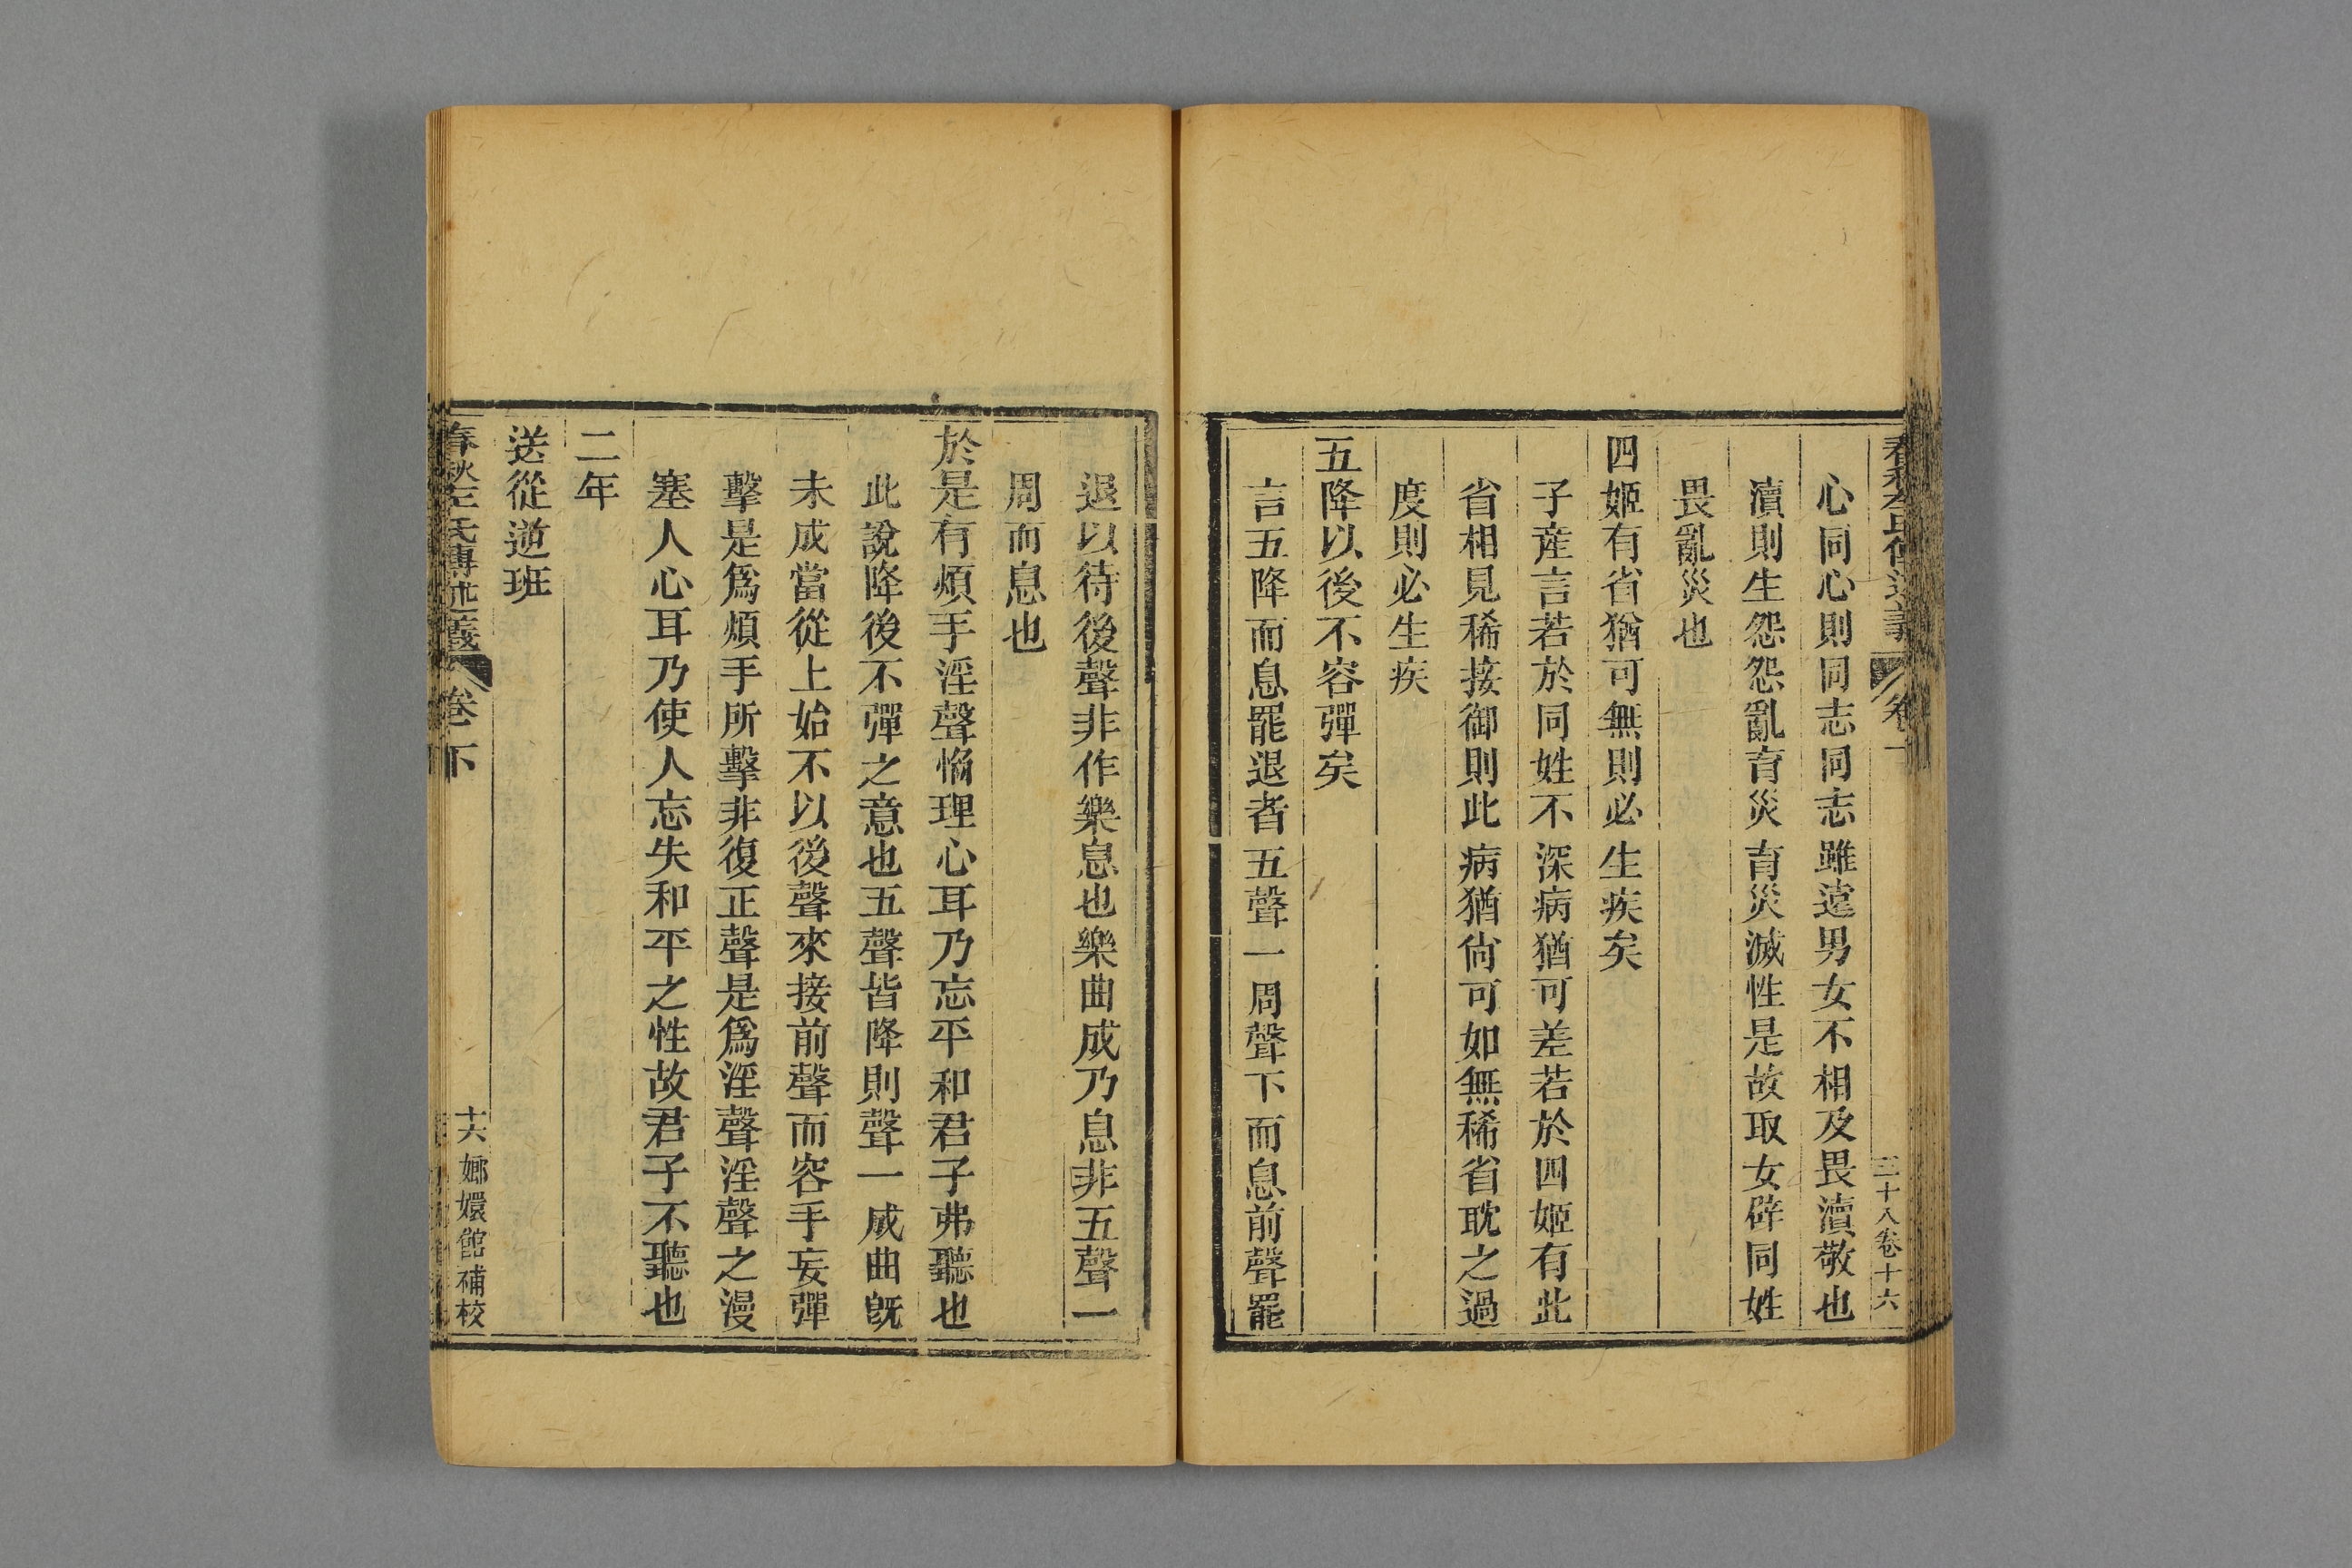 心同心則同志同志雖遠男女不相及畏瀆敬也
瀆則生怨怨亂育災育災滅性是故取女辟同姓
畏亂災也
四姬有省猶可無則必生疾矣
子産言若於同姓不深病猶可差若於四姬有此
省相見稀接御則此病猶尙可如無稀省耽之過
度則必生疾
五降以後不容彈矣
言五降而息罷退者五聲一周聲下而息前聲罷
三十八卷十六
退以待後聲非作樂息也樂曲成乃息非五聲一
周而息也
於是有煩手淫聲慆理心耳乃忘平和君子弗聽也
此說降後不彈之意也五聲皆降則聲一成曲旣
未成當從上始不以後聲來接前聲而容手妄彈
擊是爲煩手所擊非復正聲是爲淫聲淫聲之漫
塞人心耳乃使人忘失和平之性故君子不聽也
二年
送從逆班
春秋左氏傳述義 卷下
十六 嫏嬛館補校